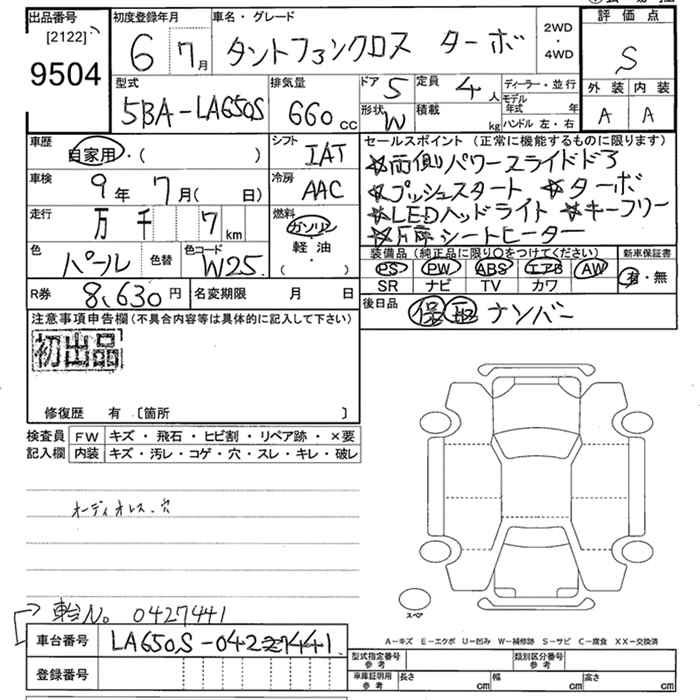 出品番号 初度登録年月 車名・グレード 2WD ・ 4WD 評価点
[2122]
9504 6 7月 タントファンクロス ターボ S
型式 排気量 ドア 5 定員 4人 ディーラー・並行 外装 内装
5BA-LA650S 660cc 形状 W 積載 kg モデル年式 年 ハンドル 左・右 A A
車歴 自家用・( ) シフト IAT
セールスポイント (正常に機能するものに限ります)
☆両側パワースライドドア
車検 9年 7月( 日) 冷房 AAC
☆プッシュスタート ☆ターボ
走行 万 千 7km 燃料 ガソリン・軽油・( )
☆LEDヘッドライト ☆キーフリー
☆F席シートヒーター
色 パール 色替 色コード W25
装備品 (純正品に限り○をつけてください) 新車保証書
PS PW ABS エアB AW 有・無
SR ナビ TV カワ
R券 8,630円 名変期限 月 日
後日品 保 取 ナンバー
注意事項申告欄(不具合内容等は具体的に記入して下さい)
初出品
修復歴 有 [箇所 ]
検査員 FW キズ・飛石・ヒビ割・リペア跡・×要
記入欄 内装 キズ・汚レ・コゲ・穴・スレ・キレ・破レ
オーディオレス.穴
スペア
車台No. 0427441
A-キズ E-エクボ U-凹み W-補修跡 S-サビ C-腐食 XX-交換済
車台番号 LA650S-0427441
型式指定番号 参考 類別区分番号 参考
登録番号
車庫証明用 参考 長さ cm 幅 cm 高さ cm